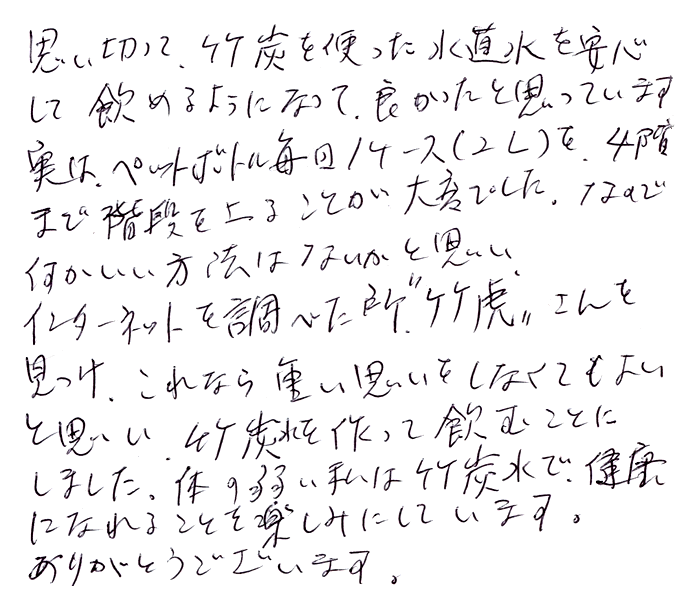 思い切って、竹炭を使った水道水を安心
して飲めるようになって、良かったと思っています
実は、ペットボトル毎回1ケース(2L)を、4階
まで階段を上ることが大変でした。なので
何かいい方法はないかと思い、
インターネットを調べた所、"竹虎"さんを
見つけ、これなら重い思いをしなくてもよい
と思い、竹炭水を作って飲むことに
しました。体の弱い私は竹炭水で、健康
になれることを楽しみにしています。
ありがとうございます。